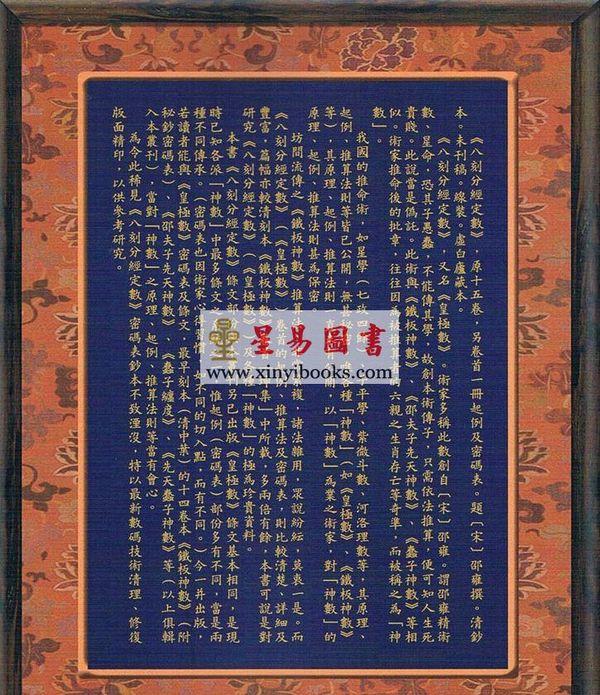 《八刻分經定數》，原十五卷，另卷首一冊起例及密碼表。題〔宋〕邵雍撰。清鈔
本。未刊稿。線裝。虛白廬藏本。
《八刻分經定數》，又名《皇極數》。術家多稱此數創自〔宋〕邵雍。謂邵雍精術
數、星命，恐其子愚蠢，不能傳其學，故創本術傳子，只需依法推算，便可知人生死
貴賤。此說當是偽託。此術與《鐵板神數》、《邵夫子先天神數》、《蠢子神數》等相
似。術家推命後的批章，往往因為被推算
六親之生肖存亡等奇準，而被稱之為「神
數」。
我國的推命術，如星學（七政四餘）、子平學、紫微斗數、河洛理數等，其原理、
起例、推算法則等皆已公開，無甚秘
各種「神數」（如《皇極數》、《鐵板神數》
等），其原理、起例、推算法則
以「神數」為業之術家，對「神數」的
原理、起例、推算法則甚為保密。
坊間流傳之《鐵板神數》推算法
複，諸法雜用，眾說紛紜，莫衷一是。而
《八刻分經定數》（《皇極數》）卷首的
推算法及密碼表，則比較清楚、詳細及
豐富，篇幅亦較清刻本《鐵板神數》
集》中所載，多兩倍有餘，本書可說是對
研究《八刻分經定數》（《皇極數》）及各
「神數」的極為珍貴資料。
本書《八刻分經定數》條文部
另已出版《皇極數》條文基本相同，是現
時已知各派「神數」中最多條文之
惟起例（密碼表）部份多有不同，當是兩
種不同傳承。（密碼表也因術家
同的切入點，而有不同。）今一并出版，
若讀者能與《皇極數》密碼表及條文、最早刻本（清中葉）的十四卷本《鐵板神數》（附
秘鈔密碼表）、《邵夫子先天神數》、《蠢子纏度》、《先天蠢子神數》等（以上俱輯
入本叢刊），當對「神數」之原理、起例、推算法則等當有會心。
為令此稀見《八刻分經定數》密碼表鈔本不致湮沒，特以最新數碼技術清理、修復
版面精印，以供參考研究。
星易圖書
www.xinyibooks.com